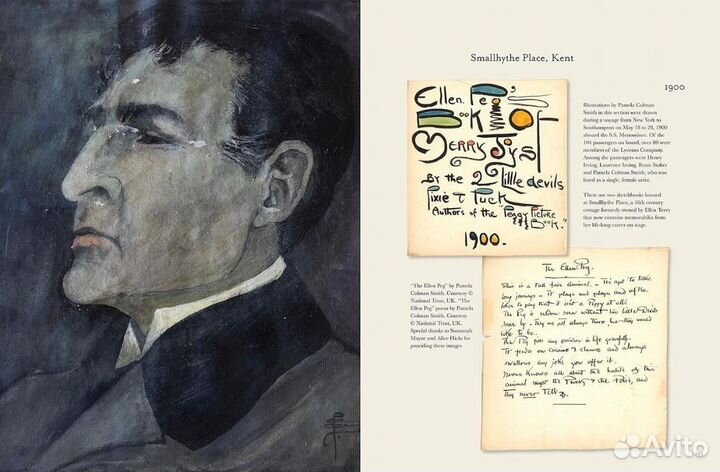 Smallhythe Place, Kent
1900
Ellen Peg's
Book Of
Merry Jyst
By the 2 little devils
Pixie & Puck
Authors of the "Peggy Picture
Book."
1900.
Illustrations by Pamela Colman
Smith in this section were drawn
during a voyage from New York to
Southampton on May 18 to 28, 1900
aboard the S.S. Menominee. Of the
104 passengers on board, over 80 were
members of the Lyceum Company.
Among the passengers were Henry
Irving, Laurence Irving, Bram Stoker
and Pamela Colman Smith, who was
listed as a single, female artist.
There are two sketchbooks housed
at Smallhythe Place, a 16th century
cottage formerly owned by Ellen Terry
that now contains memorabilia from
her life-long career on stage.
"The Ellen Peg" by Pamela
Colman Smith. Courtesy ©
National Trust, UK. "The
Ellen Peg" poem by Pamela
Colman Smith. Courtesy
© National Trust, UK.
Special thanks to Susannah
Mayor and Alice Hicks for
providing these images
The Ellen Peg.
This is a tall fair animal - It's apt to take
long journeys - it plays and plays and of the
it isn't a Peggy at all.
The Peg is seldom seen without two little Devils
near by - They are not always there but they would
like to be.
The Peg fills any position in life gracefully.
It feeds on cocoanuts & clams and always
swallows any joke you offer it.
None knows all about the habits of this
animal except the Puck & the Pixie, and
They never Tell
Avito